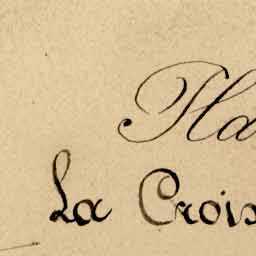 Pla
La Crois